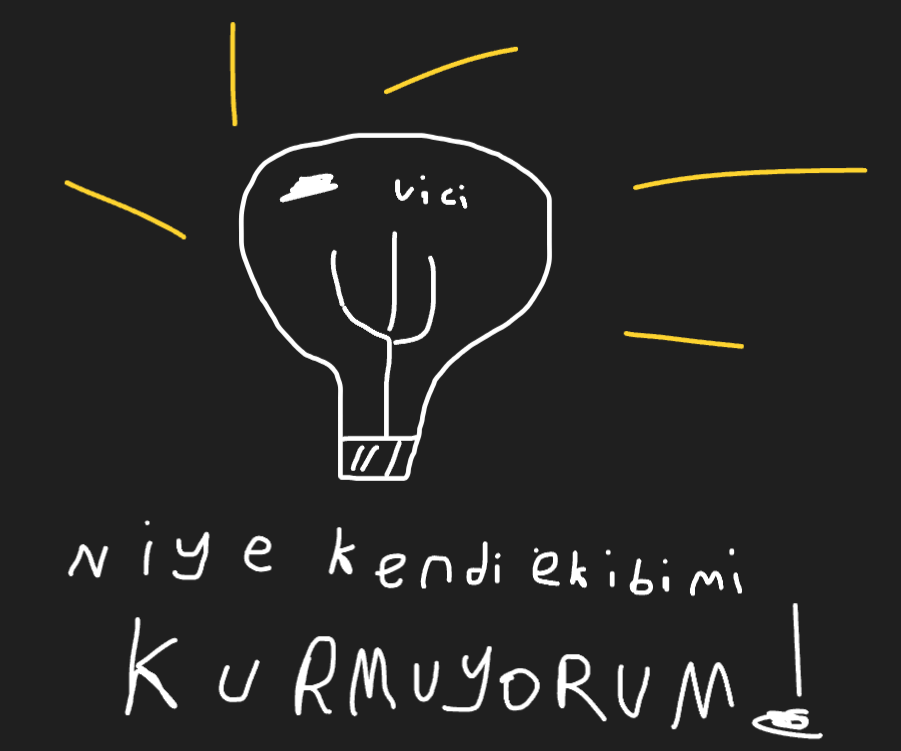 vici
Niye kendi ekibimi
KURMUYORUM!